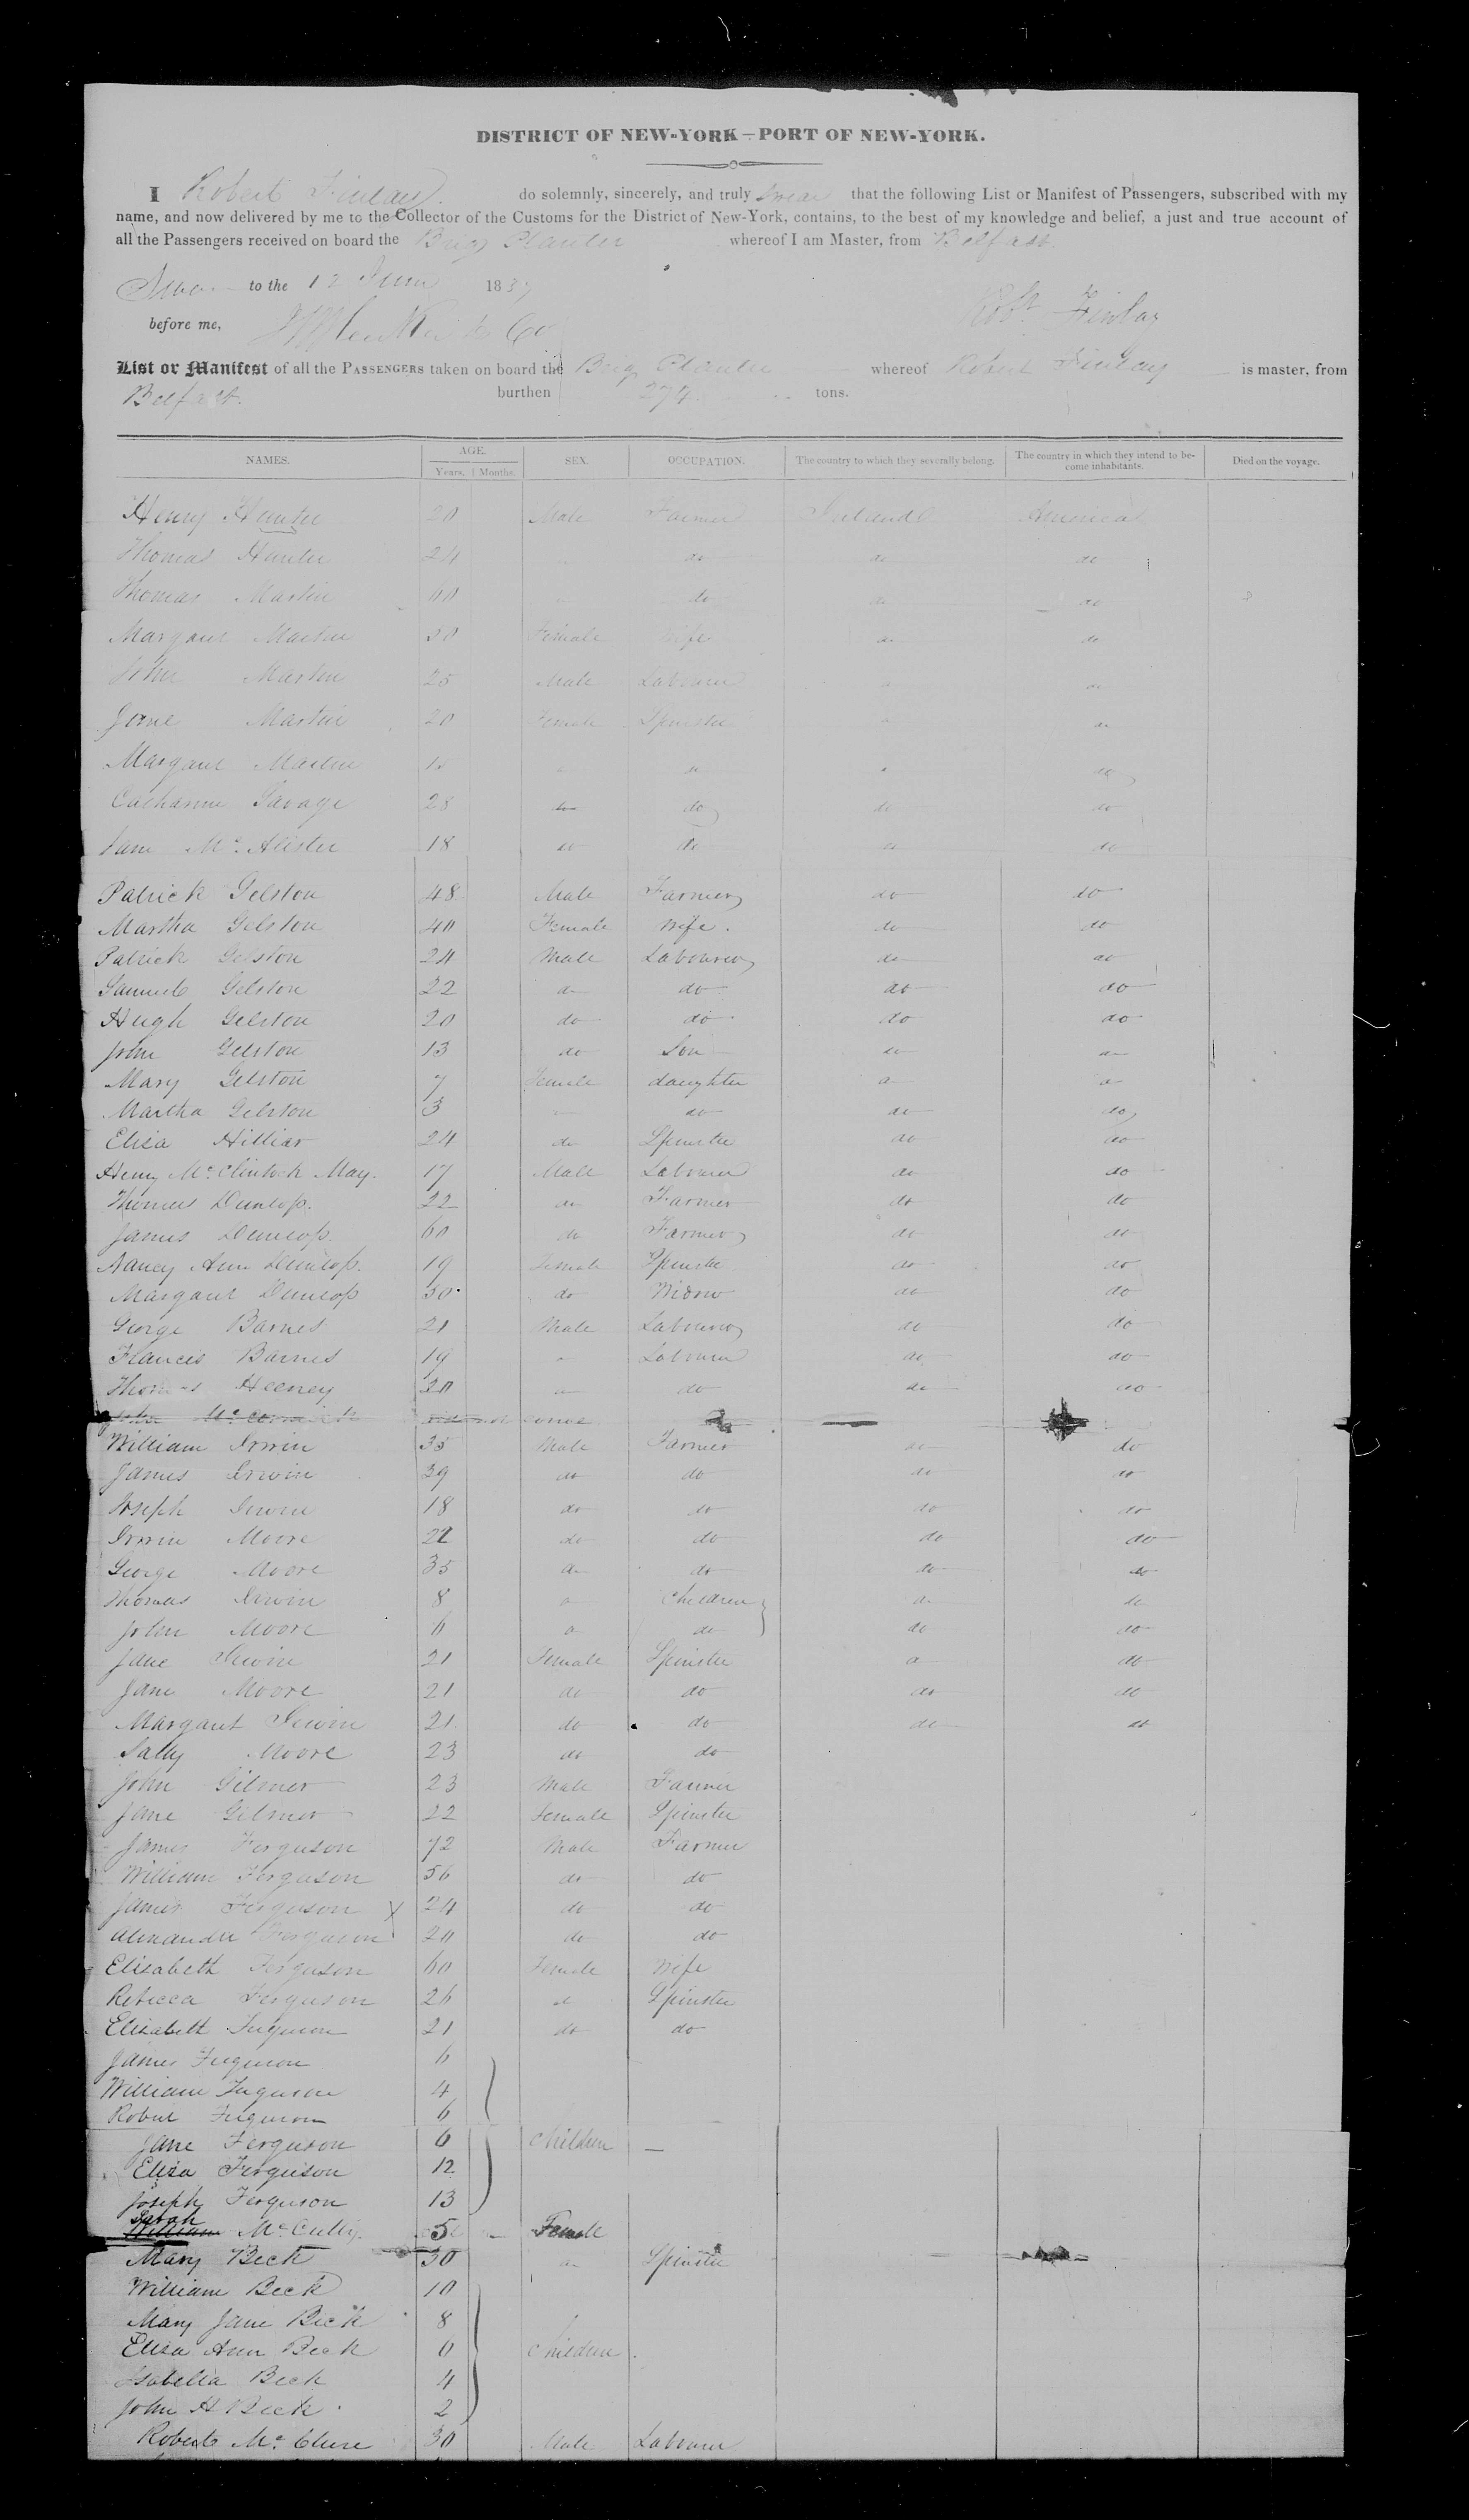 DISTRICT OF NEW-YORK—PORT OF NEW-YORK.
I Robert Finlay do solemnly, sincerely, and truly swear that the following List or Manifest of Passengers, subscribed with my
name, and now delivered by me to the Collector of the Customs for the District of New-York, contains, to the best of my knowledge and belief, a just and true account of
all the Passengers received on board the Brig Planter whereof I am Master, from Belfast
to the 12 June 183
before me,
Robt. Finlay
List or Manifest of all the PASSENGERS taken on board the Brig Planter whereof Robert Finlay is master, from
Belfast. burthen 274 tons.
NAMES. AGE. Years. Months. SEX. OCCUPATION. The country to which they severally belong. The country in which they intend to become inhabitants. Died on the voyage.
Henry Hunter 20 Male Farmer Ireland America
Thomas Hunter 24 do do do
Thomas Martin 60 do do do
Margaret Martin 50 Female Wife do do
John Martin 25 Male Labourer do
Jane Martin 20 Female Spinster do
Margaret Martin do do
Catharine Savage 28 do do do do
Jane McAlister 18 do do do do
Patrick Gelston 48 Male Farmer do do
Martha Gelston 40 Female Wife. do do
Patrick Gelston 24 Male Labourer do do
Samuel Gelston 22 do do do do
Hugh Gelston 20 do do do do
John Gelston 13 do Son do do
Mary Gelston 7 Female daughter do do
Martha Gelston 3 do do do
Eliza Hilliar 24 do Spinster do do
Henry McClintock May. 17 Male Labourer do do
Thomas Dunlop. 22 do Farmer do do
James Dunlop. 60 do Farmer do do
Nancy Ann Dunlop. 19 Female Spinster do do
Margaret Dunlop 50 do Widow do do
George Barnes 21 Male Labourer do do
Francis Barnes 19 Labourer do do
Thomas Heeney 20 do do do
John McCormick
William Irwin 35 Male Farmer do do
James Irwin 39 do do do do
Joseph Irwin 18 do do do do
Irwin Moore 22 do do do do
George Moore 35 do do do do
Thomas Irwin 8 do Children do do
John Moore 6 do do do do
Jane Irwin 21 Female Spinster do do
Jane Moore 21 do do do do
Margaret Irwin 21 do do do do
Sally Moore 23 do do
John Gilmer 23 Male Farmer
Jane Gilmer 22 Female Spinster
James Ferguson 72 Male Farmer
William Ferguson 56 do do
James Ferguson X 24 do do
Alexander Ferguson 20 do do
Elizabeth Ferguson 60 Female Wife
Rebecca Ferguson 26 do Spinster
Elizabeth Ferguson 21 do do
James Ferguson 6
William Ferguson 4
Robert Ferguson 6
Jane Ferguson 6 Children —
Eliza Ferguson 12
Joseph Ferguson 13
Sarah
William McCully. 5 Female
Mary Beck 30 do Spinster
William Beck 10
Mary Jane Beck 8
Eliza Ann Beck 6 Children
Isabella Beck 4
John H Beck 2
Robert McClure 30 Male Labourer